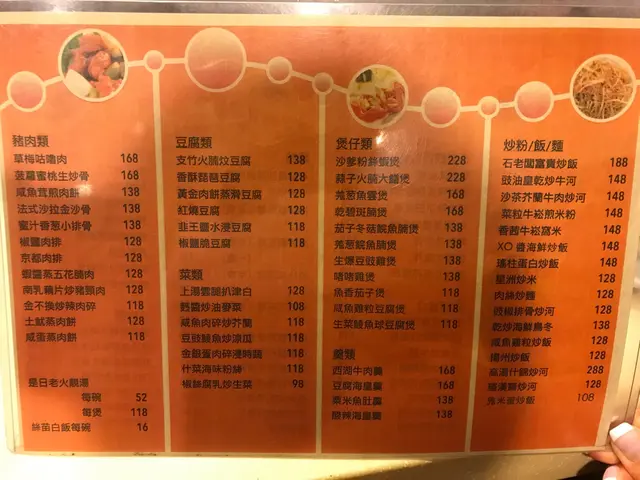 豬肉類
草梅咕嚕肉 168
菠蘿蜜桃生炒骨 168
咸魚茸煎肉餅 138
法式沙拉金沙骨 138
蜜汁香葱小排骨 138
椒鹽肉排 128
京都肉排 128
蝦醬蒸五花腩肉 128
南乳藕片炒豬頸肉 128
金不換炒辣肉碎 118
土魷蒸肉餅 128
咸蛋蒸肉餅 118
是日老火靚湯
每碗 52
每煲 118
絲苗白飯每碗 16
豆腐類
支竹火腩炆豆腐 138
香酥琵琶豆腐 138
黃金肉餅蒸滑豆腐 128
紅燒豆腐 128
韭王鹽水浸豆腐 118
椒鹽脆豆腐 118
菜類
上湯雲腿扒津白 128
豉醬炒油麥菜 108
咸魚肉碎炒芥蘭 118
豆豉鯪魚炒涼瓜 118
金銀蛋肉碎浸時蔬 118
什菜海味粉絲 118
椒絲腐乳炒生菜 98
煲仔類
沙爹粉絲蝦煲 228
蒜子火腩大鱔煲 228
羗葱魚雲煲 168
乾碧斑腩煲 168
茄子冬菇鯇魚腩煲 138
羗葱鯇魚腩煲 138
生爆豆豉雞煲 138
啫啫雞煲 118
魚香茄子煲 118
咸魚雞粒豆腐煲 118
生菜鯪魚球豆腐煲 118
羹類
西湖牛肉羹 168
豆腐海皇羹 168
粟米魚肚羹 138
酸辣海皇羹 138
炒粉/飯/麵
石老闆富貴炒飯 188
豉油皇乾炒牛河 148
沙茶芥蘭牛肉炒河 148
菜粒牛崧煎米粉 148
香茜牛崧窩米 148
XO醬海鮮炒飯 148
瑤柱蛋白炒飯 148
星洲炒米 128
肉絲炒麵 128
豉椒排骨炒河 128
乾炒海鮮烏冬 138
咸魚雞粒炒飯 128
揚州炒飯 128
高湯什錦炒河 288
羅漢齋炒河 128
鬼米蛋炒飯 108